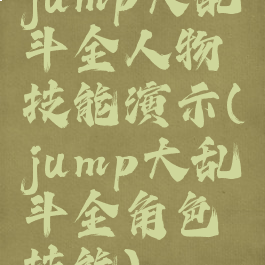 jump大乱
斗全人物
技能演示(
jump大乱
斗全角色
技能)